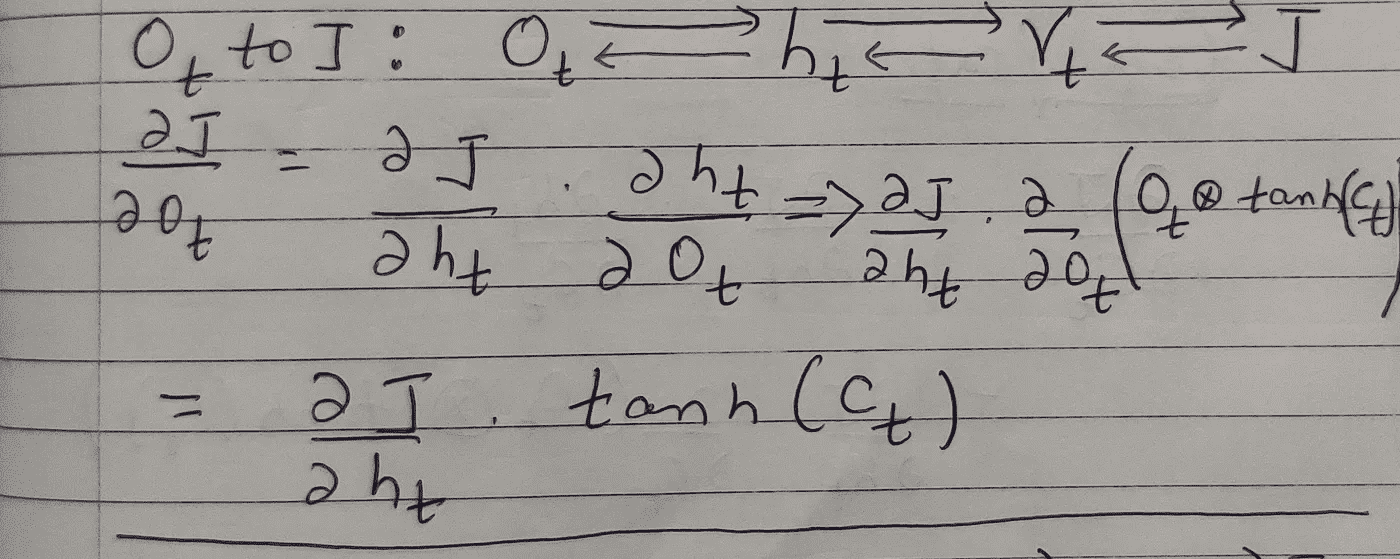 O_t to J : O_t ⇄ h_t ⇄ V_t ⇄ J
∂J/∂O_t = ∂J/∂h_t . ∂h_t/∂O_t => ∂J/∂h_t . ∂/∂O_t (O_t ⊗ tanh(C_t))
= ∂J/∂h_t . tanh(C_t)